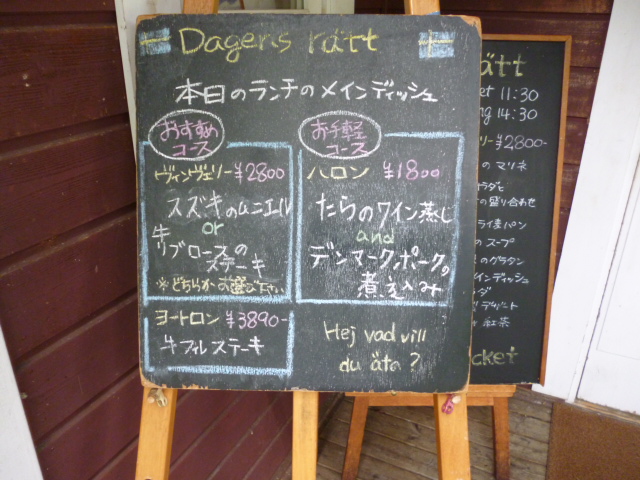 Dagens rätt
本日のランチのメインディッシュ
おすすめ
コース
ヴィンヴェリー ¥2800
スズキのムニエル
or
牛
リブロースの
ステーキ
※どちらかお選び下さい
ヨートロン ¥3890-
牛フィレステーキ
お手軽
コース
ハロン ¥1800
たらのワイン蒸し
and
デンマークポークの
煮込み
Hej vad vill
du äta?
ätt
et 11:30
ng 14:30
リー ¥2800-
のマリネ
ラダと
の盛り合わせ
ライ麦パン
のスープ
のグラタン
インディッシュ
ダ
デザート
紅茶
cket